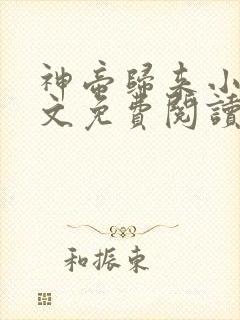 神帝歸來小
文免費閱讀
和振東